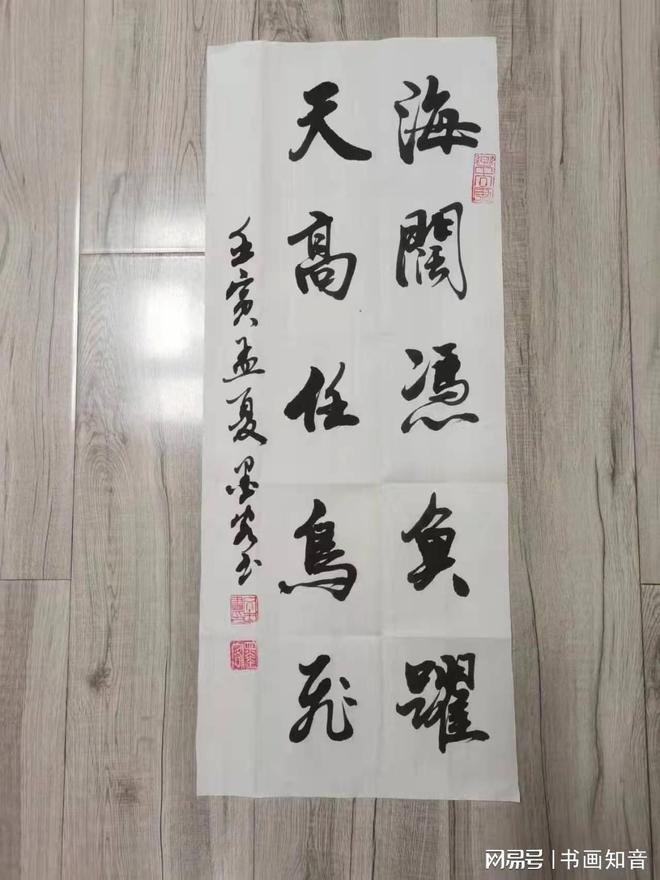 海闊憑魚躍
天高任鳥飛
壬寅孟夏墨客书
网易号 | 书画知音